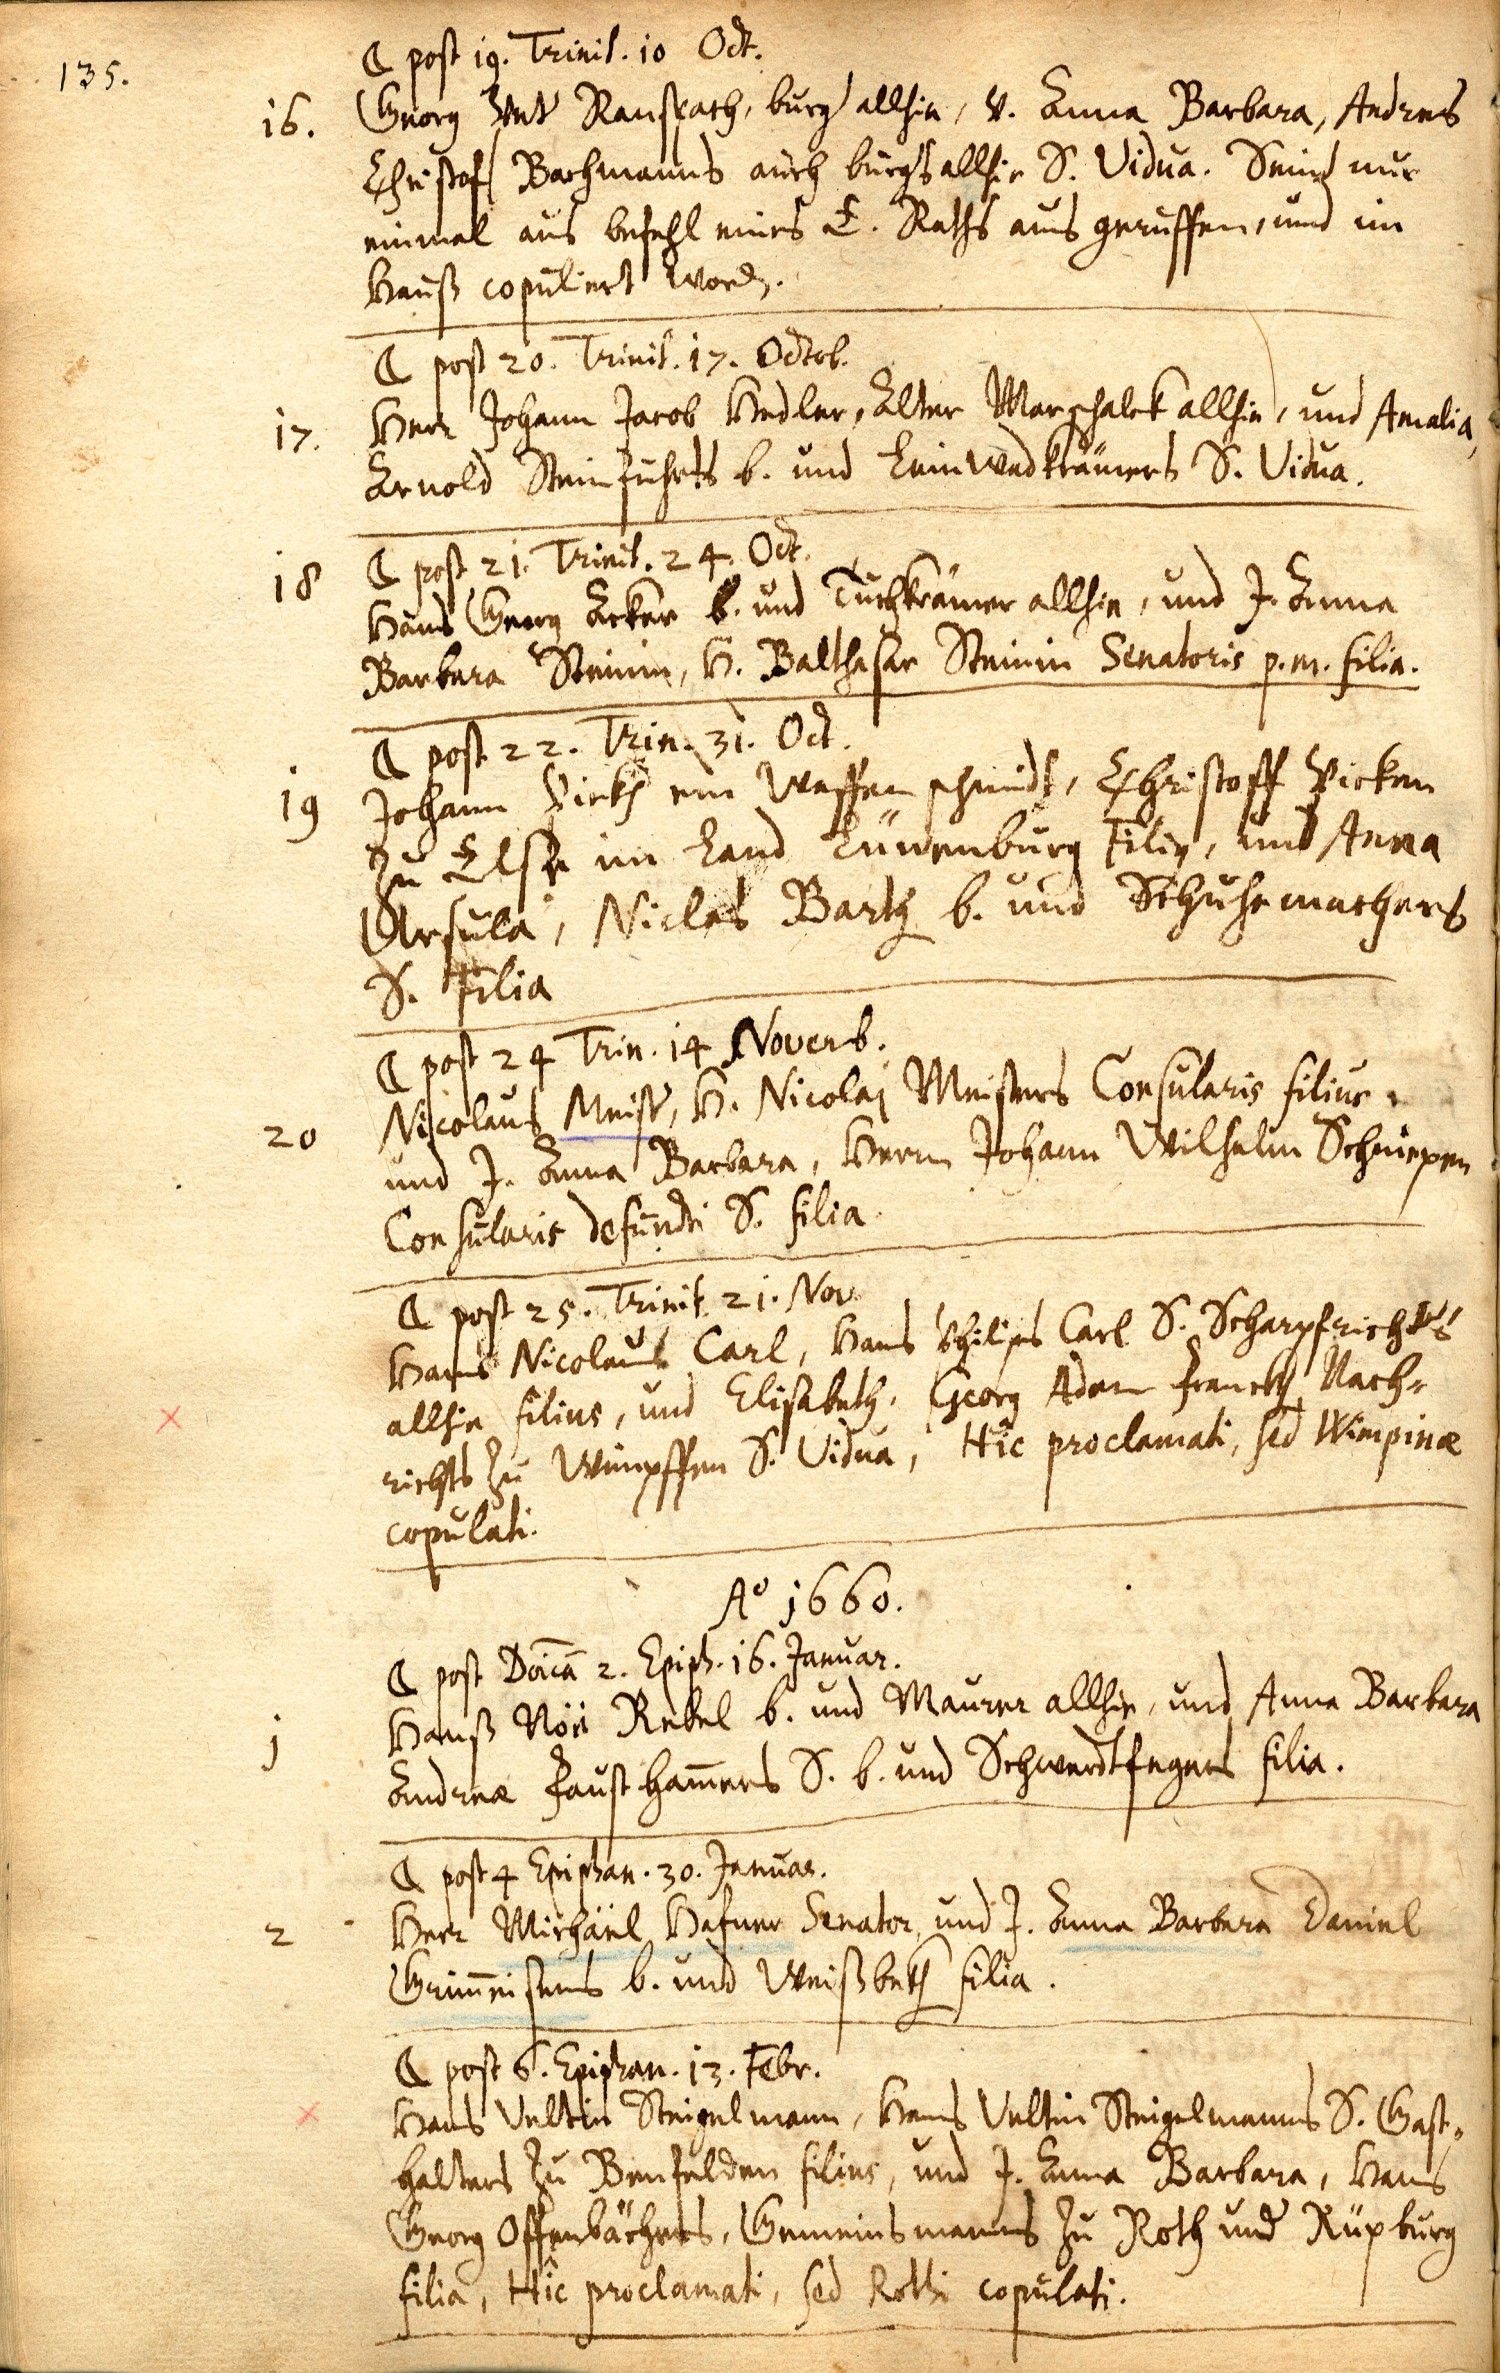 135.
☾ post 19. Trinit. 10 Oct.
16. Georg Ranspach, burger allhie, v. Anna Barbara, Andreas
Christoff Bachmanns auch burgers allhie S. Vidua. Seind nur
einmal aus befehl eines E. Raths aus geruffen, und im
Hauß copuliert word.
☾ post 20. Trinit. 17. Octob.
17. Herr Johann Jacob Hedler, Alter Marschalck allhie, und Amalia,
Arnold Steinfuhrts b. und Leinwadkrämers S. Vidua.
18 ☾ post 21. Trinit. 24. Oct.
Hans Georg Acker b. und Tuchkrämer allhie, und J. Anna
Barbara Steinin, H. Balthasar Steinin Senatoris p.m. filia.
☾ post 22. Trin. 31. Oct.
19 Johann ein Waffenschmidt, Christoff
zu im Land Lünenburg Filius, und Anna
Ursula, Niclas Bartz b. und Schuhemachers
S. filia
☾ post 24 Trin. 14 Novemb.
20 Nicolaus Meister, H. Nicolai Meisters Consularis filius,
und J. Anna Barbara, Herrn Johann Wilhelm Schnepen
Consularis defuncti S. filia.
☾ post 25. Trinit. 21. Nov.
Hans Nicolaus Carl, Hans Philips Carl S. Scharpfrichters
allhie filius, und Elisabeth, Georg Adam Francken Nach-
richters zu Wimpffen S. Vidua, Hîc proclamati, sed Wimpinæ
copulati.
Aº 1660.
☾ post Doica 2. Epiph. 16. Januar.
1 Hanß Nöë Rebel b. und Maurer allhie, und Anna Barbara
Andreæ Fausthamers S. b. und Schwerdtfegers filia.
☾ post 4 Epiphan. 30. Januar.
2 Herr Michäel Hafner Senator, und J. Anna Barbara Daniel
Grimeisens b. und Weißbeken filia.
☾ post 6. Epiphan. 13. Febr.
Hans Veltin Steigelmann, Hans Veltin Steigelmanns S. Gast-
halters zu Benfelden filius, und J. Anna Barbara, Hans
Georg Offenbächers, Gemeinsmanns zu Roth und Rüpburg
filia, Hîc proclamati, sed Rothi copulati.